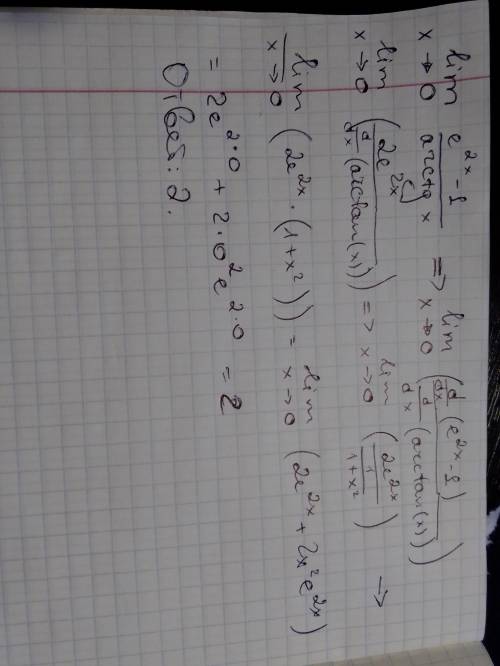 lim x→0 (e^{2x} - 1)/(arctg x) => lim x→0 ((d/dx (e^{2x} - 1))/(d/dx (arctan(x))))
lim x→0 ((2e^{2x})/(d/dx (arctan(x)))) => lim x→0 ((2e^{2x})/(1/(1+x^2))) →
lim x→0 (2e^{2x} · (1+x^2))) = lim x→0 (2e^{2x} + 2x^2e^{2x})
= 2e^{2·0} + 2·0^2e^{2·0} = 2
Ответ: 2.